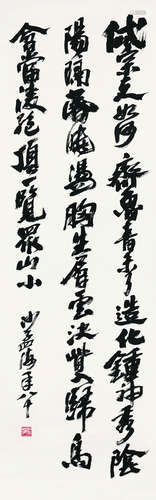 岱宗夫如何齊魯青未了造化鍾神秀陰
陽割昏曉盪胸生層雲決眥入歸鳥
會當凌絕頂一覽眾山小
沙孟海年八十